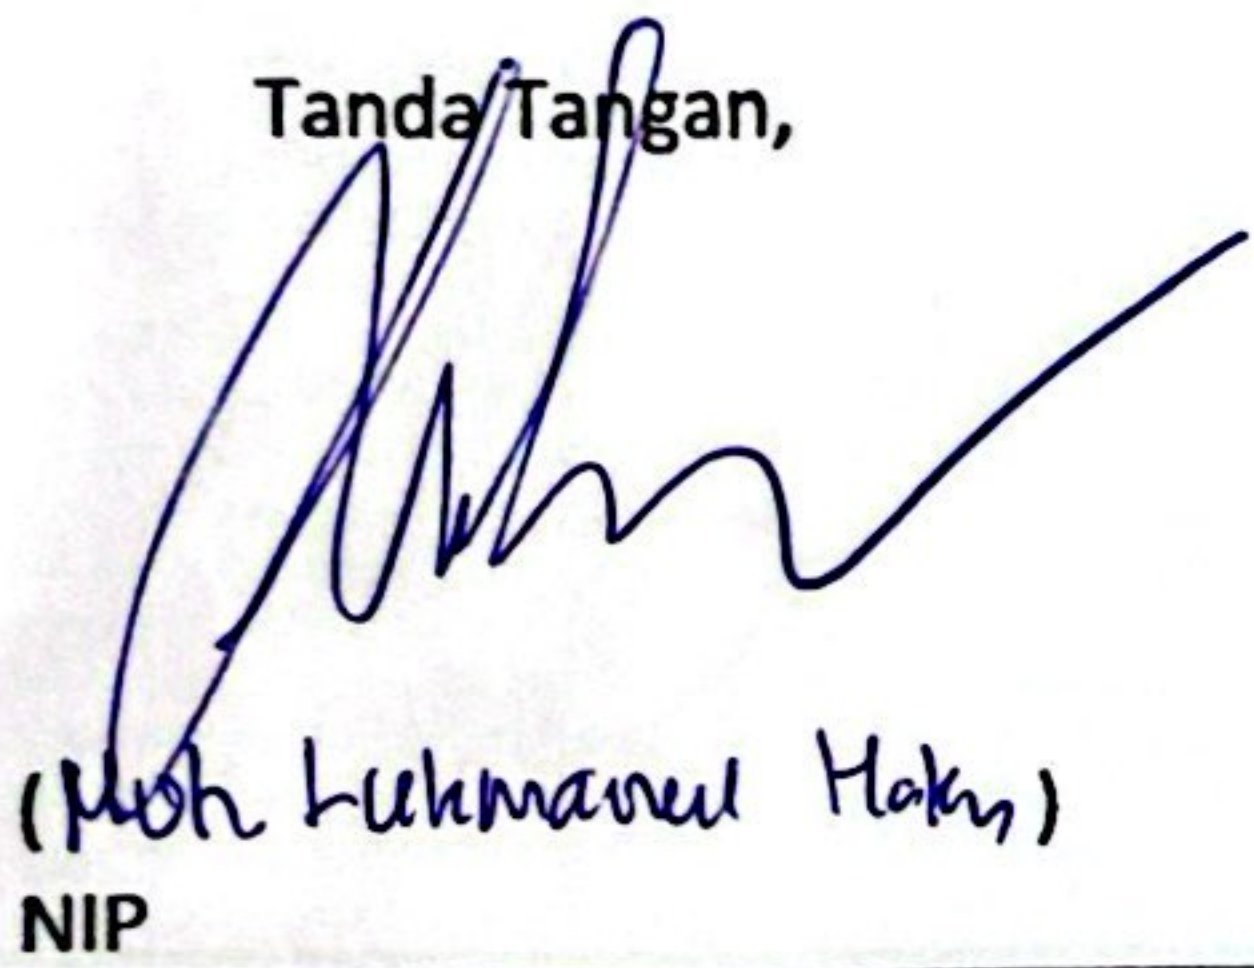 Tanda Tangan,
(Moh Lukmanul Hakim)
NIP